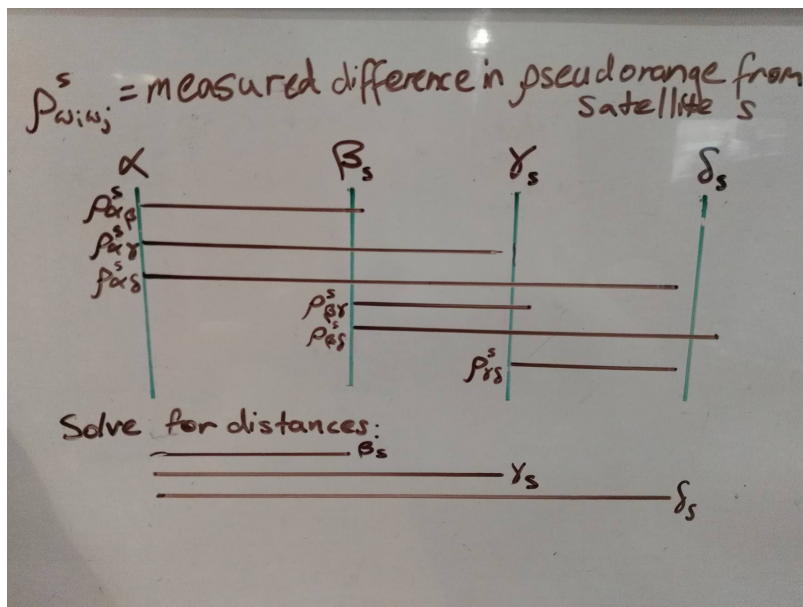 ρˢωᵢωⱼ = measured difference in pseudorange from
satellite s
α βₛ γₛ δₛ
ρˢαβ
ρˢαγ
ρˢαδ
ρˢβγ
ρˢβδ
ρˢγδ
Solve for distances:
βₛ
γₛ
δₛ